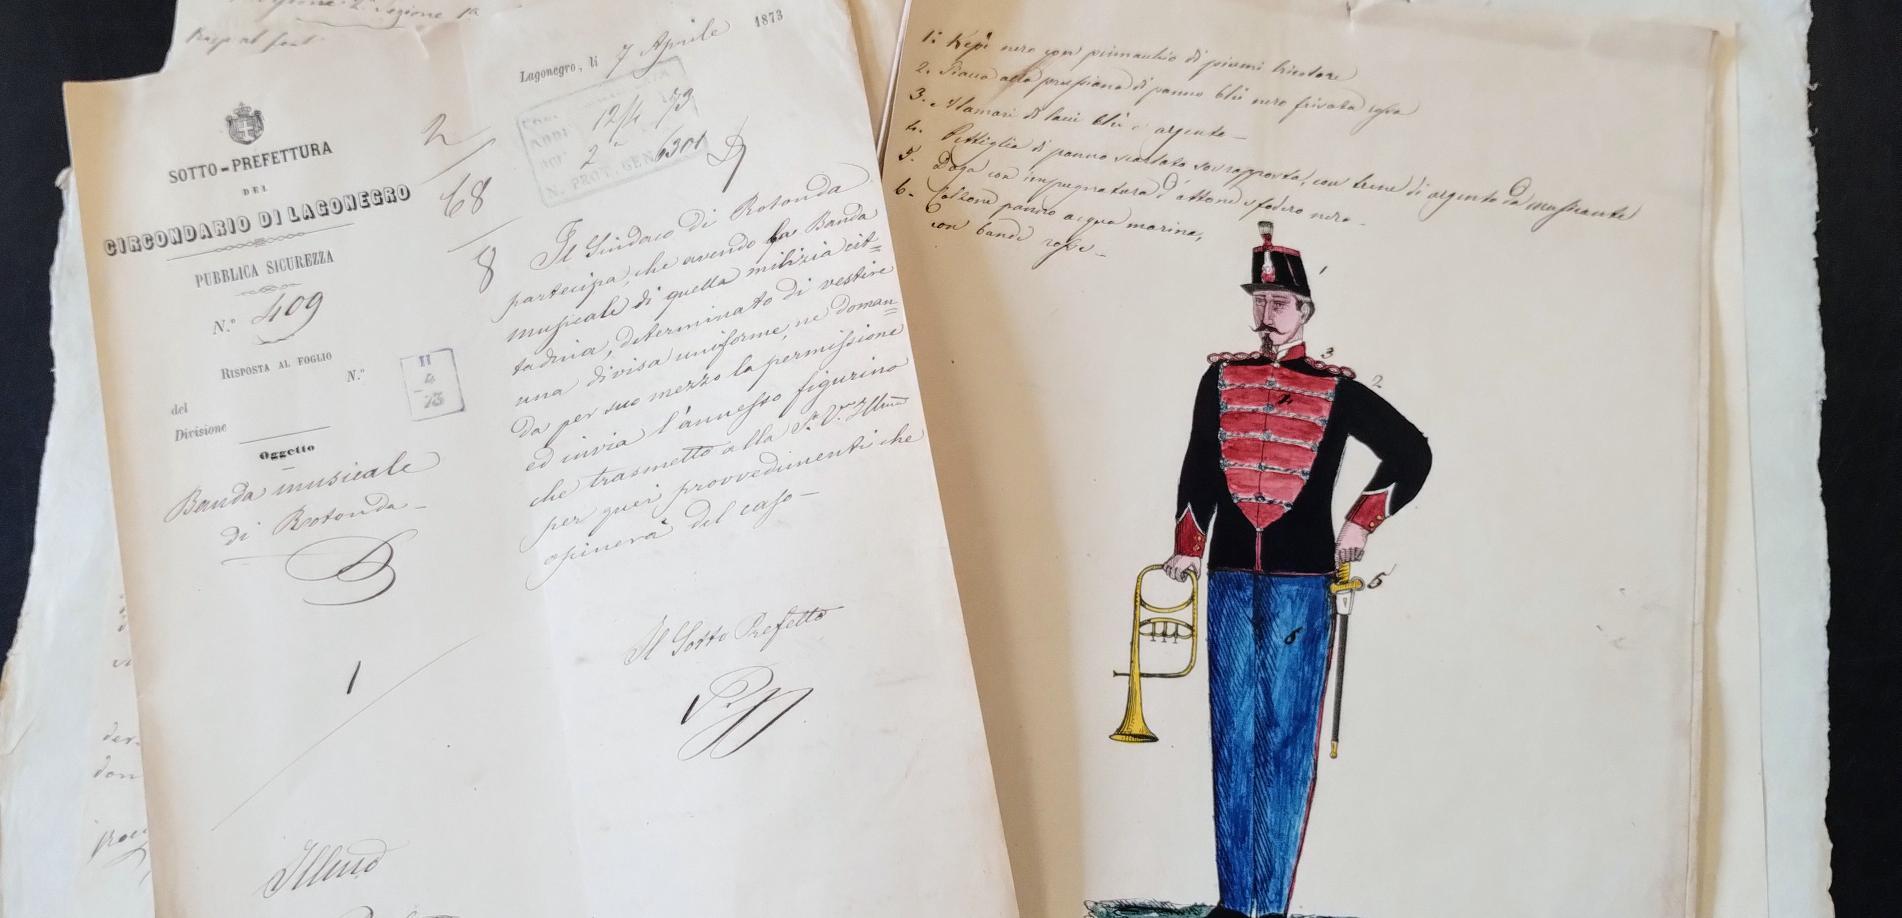 SOTTO-PREFETTURA
DEL
CIRCONDARIO DI LAGONEGRO
PUBBLICA SICUREZZA
N.° 409
RISPOSTA AL FOGLIO
N.°
del
Divisione
Oggetto
Banda musicale
di Rotonda
1
2
68
8
II
4
73
Lagonegro, li 7 Aprile 1873
12/4 73
2 6301
N. PROT. GEN
Il Sindaco di Rotonda
partecipa, che avendo la Banda
musicale di quella milizia cit=
tadina, determinato di vestire
una divisa uniforme, ne doman=
da per suo mezzo la permissione
ed invia l'annesso figurino
che trasmetto alla S. V. Illma
per quei provvedimenti che
opinerà del caso—
Il Sotto Prefetto
Illmo
1: Kepì nero con pennacchio di piume tricolore
2. alla prussiana di panno blù nero
3. Alamari di lana blù e argento—
4. Pettiglia di panno scarlatto sovrapposta, con trene di argento
5. Daga con impugnatura d'ottone e fodero nero—
6. Calzone panno acqua marina,
con bande rosse—
1
3
2
4
5
6